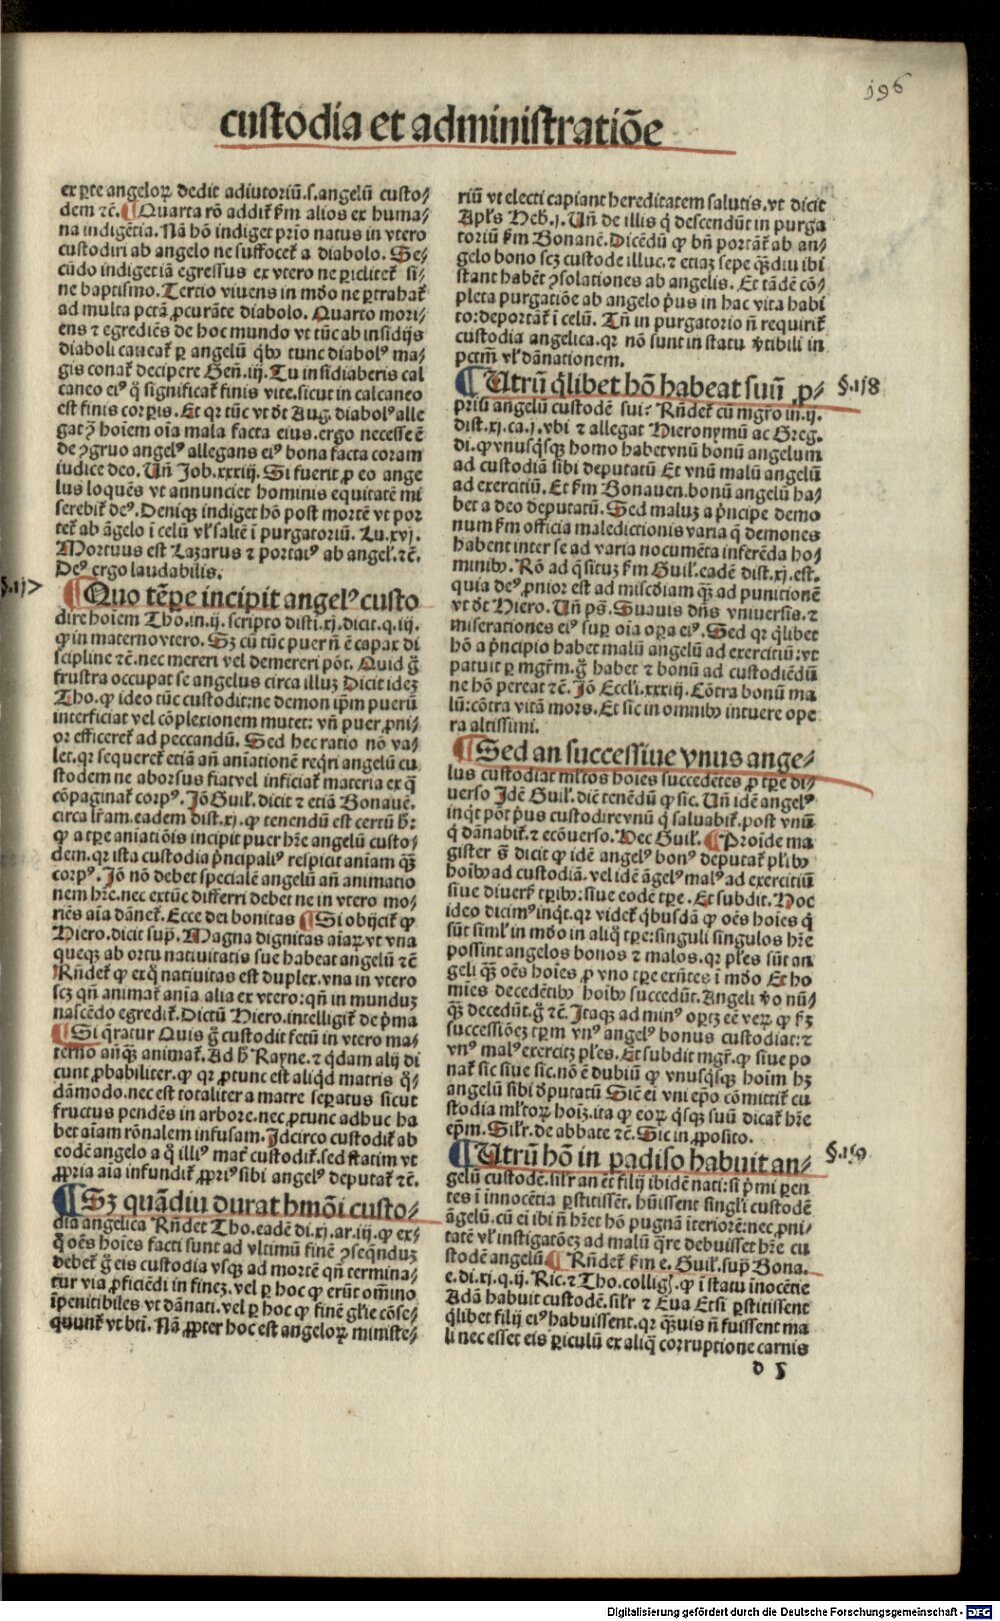 196
custodia et administratiōe
ex ꝑte angeloꝝ dedit adiutoriū.s.angelū custo⸗
dem ⁊c̄. ¶ Quarta rō addit᷑ ẜm alios ex huma⸗
na indigētia. Nā hō indiget prīo natus in vtero
custodiri ab angelo ne suffocet᷑ a diabolo. Se⸗
cūdo indiget iā egressus ex vtero ne ꝑiclitet᷑ si⸗
ne baptismo. Tertio viuens in mūdo ne ꝑtrahat᷑
ad multa pctā ꝓcurāte diabolo. Quarto mori⸗
ens ⁊ egrediēs de hoc mundo vt tūc ab insidijs
diaboli caueat᷑ ꝑ angelū qͥbꝰ tunc diabolꝰ ma⸗
gis conat᷑ decipere Geñ.iij. Tu insidiaberis cal
caneo eiꝰ ꝙ significat᷑ finis vite.sicut in calcaneo
est finis corꝑis. Et qꝛ tūc vt dt̄ Aug. diabolꝰ alle
gat ꝯ̄ hoīem oīa mala facta eius.ergo necesse ē
de ꝯgruo angelꝰ allegans eiꝰ bona facta coram
iudice deo. Uñ Job.xxxiij. Si fuerit ꝓ eo ange
lus loquēs vt annunciet hominis equitatē mi
serebit᷑ deꝰ. Deniqꝫ indiget hō post mortē vt por
tet᷑ ab āgelo ī celū vl̓ saltē ī purgatoriū. Lu.xvj.
Mortuus est Lazarus ⁊ portatꝰ ab angel̓.⁊c̄.
Deꝰ ergo laudabilis.
§.117
¶ Quo tēꝑe incipit angelꝰ custo
dire hoīem Tho.in.ij.scripto disti.xj.dicit.q.iij.
ꝙ in materno vtero. Sꝫ cū tūc puer ñ ē capax di
scipline ⁊c̄.nec mereri vel demereri pōt. Quid g̊
frustra occupat se angelus circa illuꝫ Dicit ideꝫ
Tho.ꝙ ideo tūc custodit:ne demon ip̄m puerū
interficiat vel cōplexionem mutet: vñ puer ꝓni⸗
or efficeret᷑ ad peccandū. Sed hec ratio nō va⸗
let.qꝛ sequeret᷑ etiā añ aniationē reqͥri angelū cu
stodem ne aborsus fiat vel inficiat᷑ materia ex qͣ
cōpaginat᷑ corpꝰ. Jō Guil̓.dicit ⁊ etiā Bonauē.
circa lr̄am.eadem dist.xj.ꝙ tenendū est certū h̄:
ꝙ a tꝑe aniatiōis incipit puer hr̄e angelū custo⸗
dem.qꝛ ista custodia p̄ncipaliꝰ respicit aniam qͣꝫ
corpꝰ. Jō nō debet specialē angelū añ animatio
nem hr̄e.nec ex tūc differri debet ne in vtero mo⸗
riēs aīa dānet᷑. Ecce dei bonitas ¶ Si obijcit᷑ ꝙ
Hiero.dicit sup̄. Magna dignitas aīaꝝ vt vna
queqꝫ ab ortu natiuitatis sue habeat angelū ⁊c̄
Rñdet᷑ ꝙ ex qͦ natiuitas est duplex.vna in vtero
scꝫ qñ animat᷑ ania alia ex vtero:qñ in munduꝫ
nascēdo egredit᷑. Dictū Hiero.intelligit᷑ de p̄ma
¶ Si q̄ratur Quis g̊ custodit fetū in vtero ma⸗
terno anqͣꝫ animat᷑. Ad h̄ Rayne.⁊ qͥdam alij di
cunt ꝓbabiliter.ꝙ qꝛ ꝓ tunc est aliqͥd matris qͦ⸗
dāmodo.nec est totaliter a matre seꝑatus sicut
fructus pendēs in arbore.nec ꝓ tunc adhuc ha
bet aīam rōnalem infusam. Jdcirco custodit᷑ ab
eodē angelo a qͦ illiꝰ mat᷑ custodit᷑.sed statim vt
ꝓpria aīa infundit᷑ ꝓpriꝰ sibi angelꝰ deputat᷑ ⁊c̄.
¶ Sꝫ quādiu durat hmōi custo⸗
dia angelica Rñdet Tho.eadē di.xj.ar.iij.ꝙ ex⸗
qͦ oēs hoīes facti sunt ad vltimū finē ꝯseqnduꝫ
debet᷑ g̊ eis custodia vsqꝫ ad mortē qñ termina⸗
tur via ꝓficiēdi in fineꝫ.vel ꝑ hoc ꝙ erūt om̄ino
īpenitibiles vt dānati.vel ꝑ hoc ꝙ finē gl̓ie cōse⸗
quunt᷑ vt bt̄i. Nā ꝓpter hoc est angeloꝝ ministe⸗
riū vt electi capiant hereditatem salutis.vt dicit
Apl̓s Heb.j. Uñ de illis qͥ descendūt in purga
toriū ẜm Bonauē. Dicēdū ꝙ bñ portāt᷑ ab an⸗
gelo bono scꝫ custode illuc.⁊ etiaꝫ sepe qͣꝫdiu ibi
stant habēt ꝯsolationes ab angelis. Et tādē cō⸗
pleta purgatiōe ab angelo pͥus in hac vita habi
to:deportāt᷑ ī celū. Tñ in purgatorio ñ requirit᷑
custodia angelica.qꝛ nō sunt in statu v̓tibili in
pctm̄ vl̓ dānationem.
¶ Utrū qͥlibet hō habeat suū ꝓ⸗
§.118
priū angelū custodē sui? Rñdet᷑ cū mgr̄o in.ij.
dist.xj.ca.j.vbi ⁊ allegat Hieronymū ac Greg.
di.ꝙ vnusqͥsqꝫ homo habet vnū bonū angelum
ad custodiā sibi deputatū Et vnū malū angelū
ad exercitiū. Et ẜm Bonauen.bonū angelū ha⸗
bet a deo deputatū. Sed maluꝫ a p̄ncipe demo
num ẜm officia maledictionis varia qͥ demones
habent inter se ad varia nocumēta inferēda ho⸗
minibꝰ. Rō ad qͦsituꝫ ẜm Guil̓.eadē dist.xj.est.
quia deꝰ ꝓnior est ad miscdiam qͣꝫ ad punitionē
vt dt̄ Hiero. Uñ pꝰ. Suauis dñs vniuersis.⁊
miserationes eiꝰ suꝑ oīa oꝑa eiꝰ. Sed qꝛ qͥlibet
hō a p̄ncipio habet malū angelū ad exercitiū:vt
patuit ꝑ mgr̄m.g̊ habet ⁊ bonū ad custodiēdū
ne hō pereat ⁊c̄. Jō Eccl̓i.xxxiij. Cōtra bonū ma
lū:cōtra vitā mors. Et sic in omnibꝰ intuere ope
ra altissimi.
¶ Sed an successiue vnus ange⸗
lus custodiat ml̓tos hoīes succedētes ꝓ tꝑe di⸗
uerso Jdē Guil̓.dic̄ tenēdū ꝙ sic. Uñ idē angelꝰ
inqͥt pōt pͥus custodire vnū qͥ saluabit᷑.post vnū
qͥ dānabit᷑ ⁊ ecōuerso. Hec Guil̓. ¶ Proīde ma
gister s̄ dicit ꝙ idē angelꝰ bonꝰ deputat᷑ pl̓ibꝰ
hoībꝰ ad custodiā.vel idē āgelꝰ malꝰ ad exercitiū
siue diuersꝭ tꝑibꝰ:siue eodē tꝑe. Et subdit. Hoc
ideo dicimꝰ inqͥt.qꝛ videt᷑ qͥbusdā ꝙ oēs hoīes qͥ
sūt siml̓ in mūdo in aliqͦ tꝑe:singuli singulos hr̄e
possint angelos bonos ⁊ malos.qꝛ pl̓es sūt an
geli qͣꝫ oēs hoīes ꝓ vno tꝑe exñtes ī mūdo Et ho
mīes decedētibꝰ hoībꝰ succedūt. Angeli v̓o nūⸯ⸗
qͣꝫ decedūt.g̊ ⁊c̄. Jtaqꝫ ad minꝰ oꝑtꝫ eē veꝝ ꝙ ẜꝫ
successiōeꝫ tꝑm vnꝰ angelꝰ bonus custodiat:⁊
vnꝰ malꝰ exercitꝫ pl̓es. Et subdit mgr̄.ꝙ siue po
nat᷑ sic siue sic.nō ē dubiū ꝙ vnusqͥsqꝫ hoīm hꝫ
angelū sibi deputatū Sic ei vni ep̄o cōmittit᷑ cu
stodia ml̓toꝝ hoīꝫ.ita ꝙ eoꝝ qͥsqꝫ suū dicat᷑ hr̄e
ep̄m. Sil̓r.de abbate ⁊c̄. Sic in ꝓposito.
¶ Utrū hō in ꝑadiso habuit an⸗
§.119
gelū custodē.sil̓r an et filij ibidē nati:si p̄mi ꝑen
tes ī innocētia ꝑstitissēt.hūissent singl̓i custodē
āgelū.cū ei ibi ñ hr̄et hō pugnā īteriorē:nec ꝓni⸗
tatē vl̓ instigatōeꝫ ad malū qͣre debuisset hr̄e cu
stodē angelū ¶ Rñdet᷑ ẜm e. Guil̓.suꝑ Bona.
e.di.xj.q.ij. Ric.⁊ Tho.colligꝭ.ꝙ ī statu īnocētie
Adā habuit custodē.sil̓r ⁊ Eua Etsi ꝑstitissent
qͥlibet filij eiꝰ habuissent.qꝛ qͣꝫuis ñ fuissent ma
li nec esset eis ꝑiculū ex aliqͣ corruptione carnis
d 5
Digitalisierung gefördert durch die Deutsche Forschungsgemeinschaft - DFG